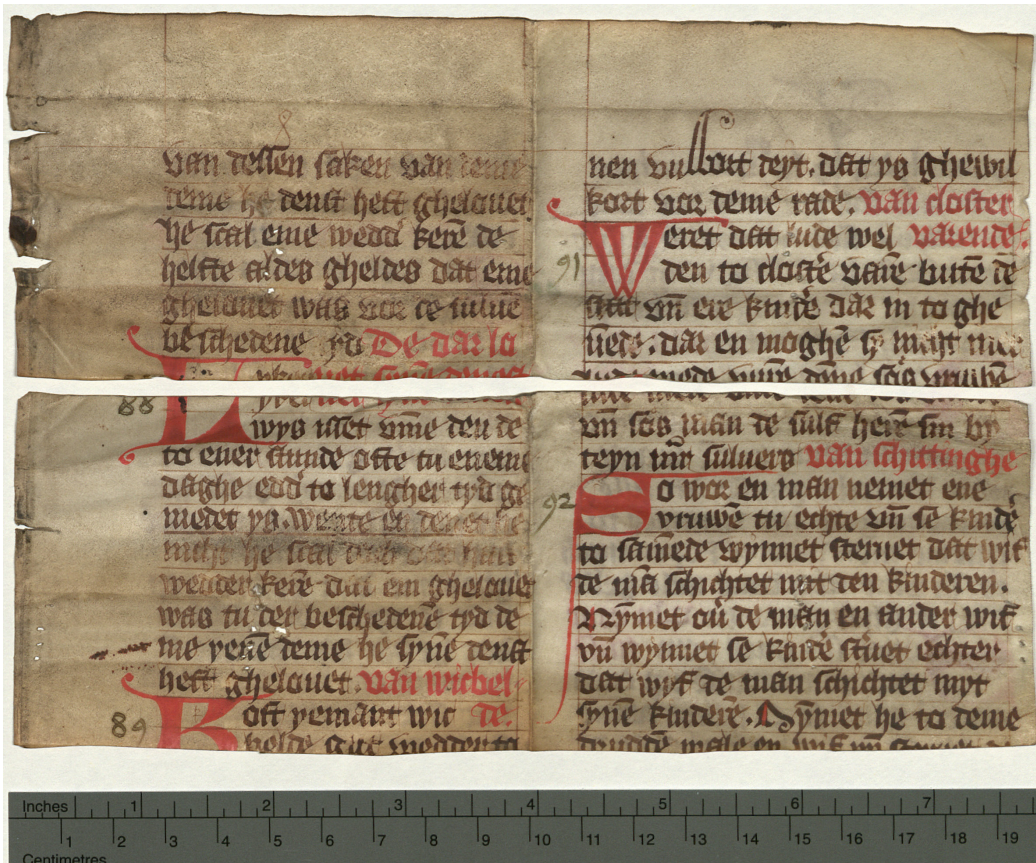 van dessen saken van deme
deme he denst heft ghelouet
he scal eme wedd kere de
helfte aldes gheldes dat eme
ghelouet was vor de
beschedene tyd De dar lo
88
wys iset vme den de
to ener stunde ofte tu eneme
daghe edd to lengher tyd ge
medet ys. Wente en denet he
nicht he scal
wedder kere dat em ghelouet
was tu der beschedene tyd de
me yene deme he syne denst
heft ghelouet. van wicbel
89
Koft yemant wic de.
belde wedder to
nen vulbort deyt. dat ys ghewil
kort vor deme rade. van closter
91
Weret dat lude wel varende
den to closter vare bute de
stat vn ere kinder dar in to ghe
uede. dar en moghe sy nicht me
vn sos man de sulf here sin by
teyn mr suluers van schittinghe
92
So wor en man nemet ene
vruwe tu echte vn se kinder
to samede wynnet steruet dat wif
de ma schichtet mit den kinderen.
Nymet ou de man en ander wif
vn wynnet se kinder steruet echter
dat wyf de man schichtet myt
syne kindere. Nymet he to deme
drudde male en wif vn
Inches 1 2 3 4 5 6 7
1 2 3 4 5 6 7 8 9 10 11 12 13 14 15 16 17 18 19
Centimetres